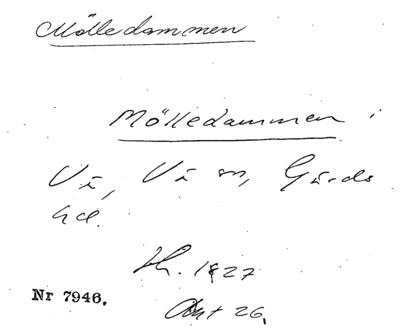 Mölledammen
Mölledammen
Vä, Vä sn, Gärds
hd.
h. 1927
Ant 26.
Nr 7946.